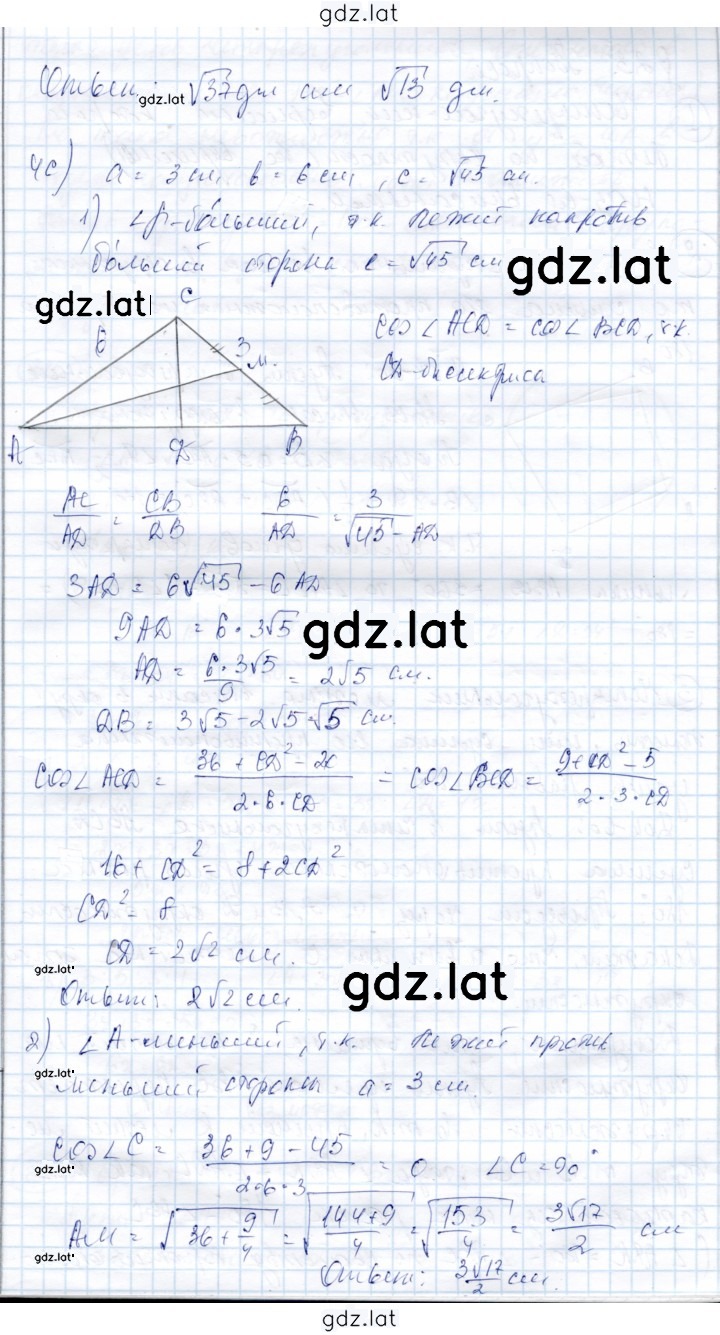 gdz.lat
Ответ: √37 дм или √13 дм.
gdz.lat
4c) a = 3 см, b = 6 см, c = √45 см.
1) ∠β-бо́льший, т.к. лежит напротив
бо́льшей стороны c = √45 см
gdz.lat
gdz.lat
C
6
3
M
A
D
B
cos∠ACD = cos∠BCD, т.к.
CD-биссектриса
AC/AD = CB/DB 6/AD = 3/(√45 - AD)
3AD = 6√45 - 6AD
9AD = 6·3√5
gdz.lat
AD = 6·3√5/9 = 2√5 см.
DB = 3√5 - 2√5 = √5 см.
cos∠ACD = (36 + CD² - 20)/(2·6·CD) = cos∠BCD = (9+CD² - 5)/(2·3·CD)
16 + CD² = 8 + 2CD²
CD² = 8
CD = 2√2 см.
gdz.lat
gdz.lat
Ответ: 2√2 см.
gdz.lat
2) ∠A-меньший, т.к. лежит против
gdz.lat
меньшей стороны a = 3 см.
cos∠C = (36 + 9 - 45)/(2·6·3) = 0 ∠C = 90°
gdz.lat
AM = √(36 + 9/4) = √((144+9)/4) = √(153/4) = 3√17/2 см
gdz.lat
Ответ: 3√17/2 см.
gdz.lat